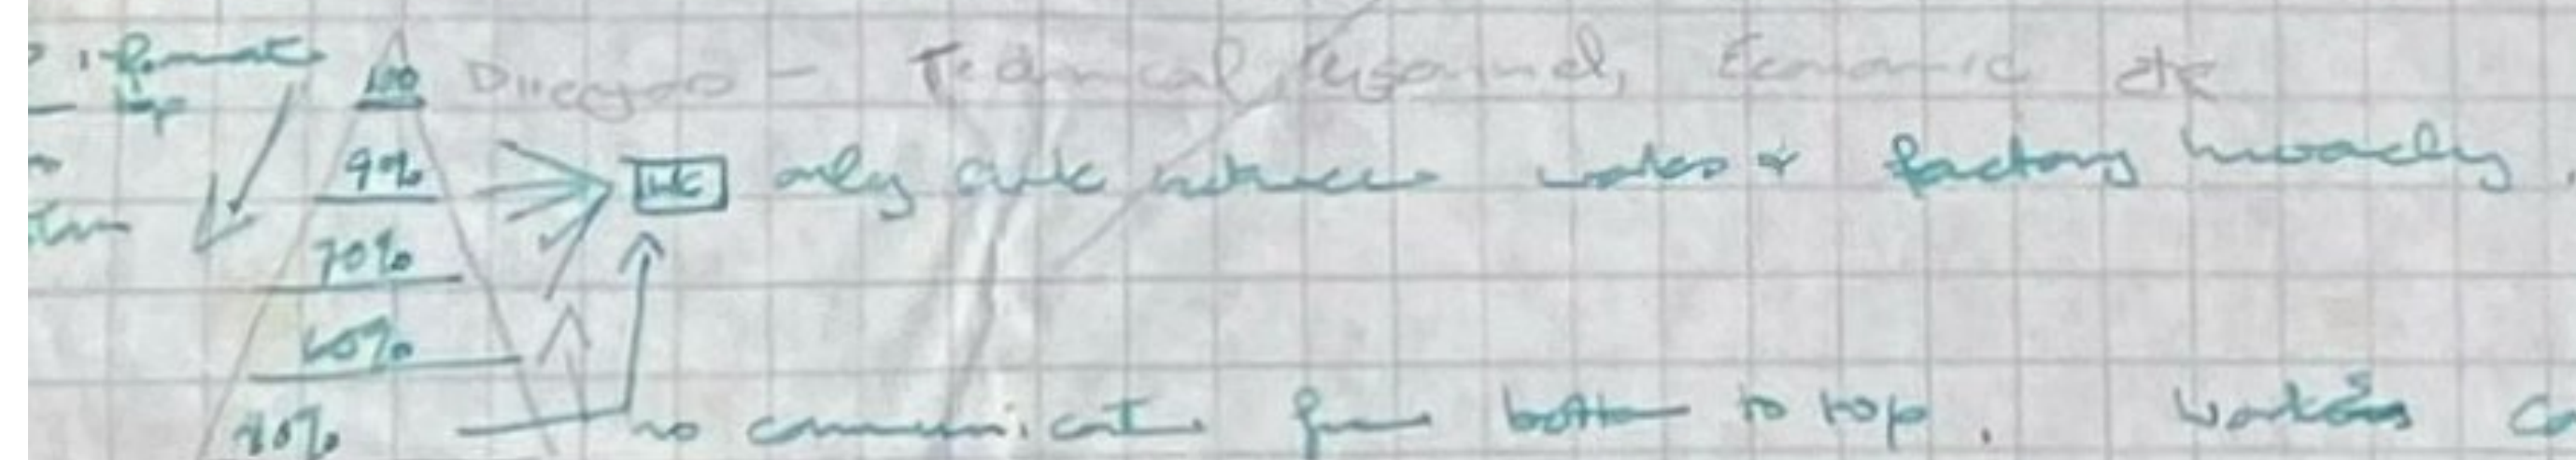 100 Directors - Technical, Personnel, Economic etc
top
90%
WC only link between workers & factory hierarchy.
70%
60%
no communication from bottom to top. Workers